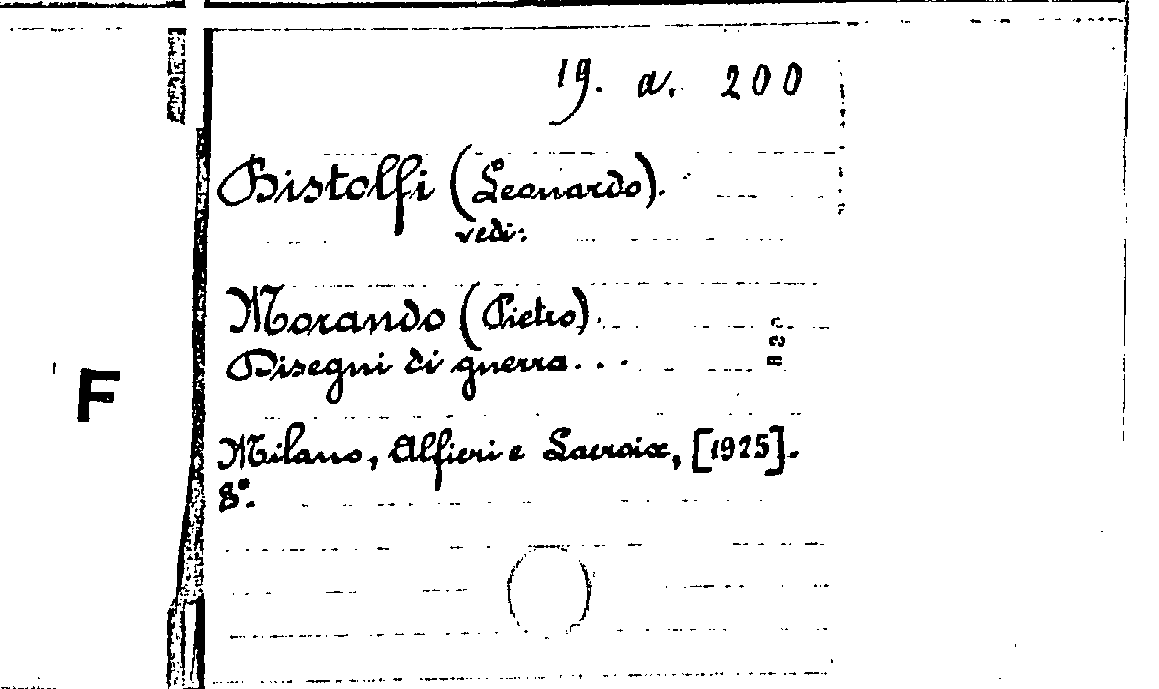 19. a. 200
Bistolfi (Leonardo).
vedi:
Morando (Pietro).
Disegni di guerra...
F
Milano, Alfieri e Lacroix, [1925].
8°.